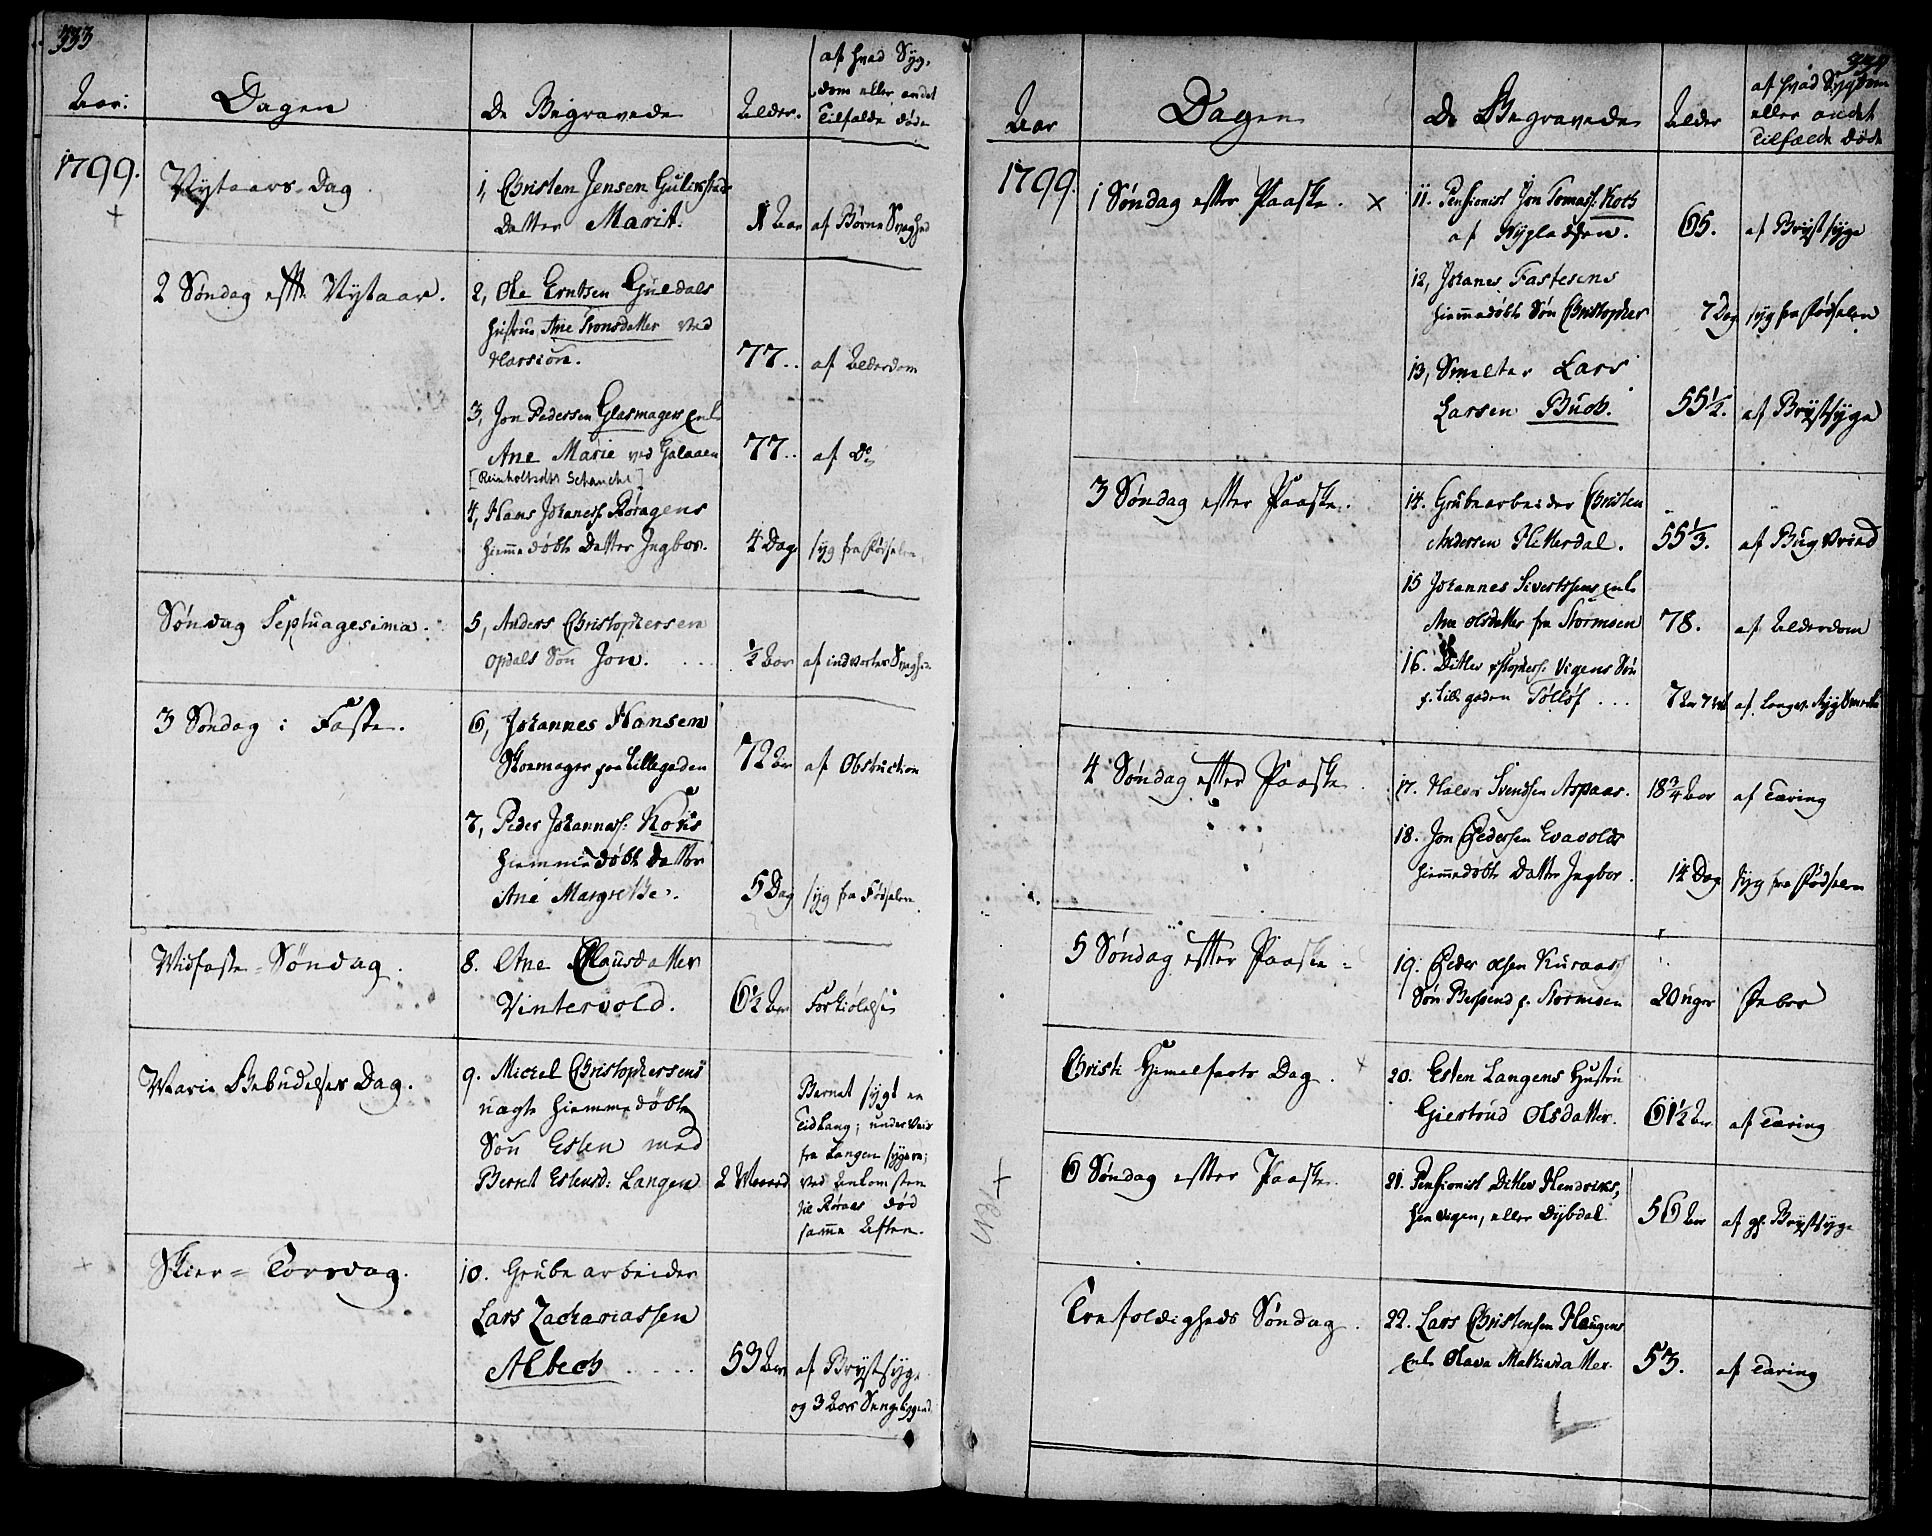 333
Aar:
Dagen
De Begravede
Alder.
af hvad Syg-
dom eller andet
Tilfælde døde
1799.
Nytaars-Dag
1, Christen Jensen Gulikstads
Datter Marit.
1 Aar
af Børne Svaghed
2 Søndag eftr. Nytaar.
2, Ole Erntsen Guldals
Hustrue Ane Tronsdatter ved
Harsiøen.
77..
af Alderdom
3, Jon Pedersen Glasmagers Enke
Ane Marie ved Galaaen
[Reinholtsdtr Schanche]
77..
af Do
4, Hans Johaness. Røragens
hiemmedøbte Datter Ingbor.
4 Dag
syg fra Fødselen
Søndag Septuagesima.
5, Anders Christophersen
Opdals Søn Jon.
½ Aar
af indvortes Svaghed
3 Søndag i Faste.
6, Johannes Hansen
Skomager paa Lillegaden
72 Aar
af Obstruction
7, Peder Johanness. Kokis
hiemmedøbte Datter
Ane Margrethe.
5 Dag
syg fra Fødselen
Midfaste-Søndag.
8. Ane Clausdatter
Vintervold.
6½ Aar
Forkiølelse
Marie Bebudelses Dag.
9. Mickel Christophersens
uægte hiemmedøbte
Søn Esten med
Beret Estensd: Langen
2 Maaned
Barnet sygt en
Tidlang; underveis
fra Langen sygere;
ved Ankomsten
til Røraas død
samme Aften.
Skier=Torsdag.
10. Grubearbeider
Lars Zachariassen
Albech
53 Aar
af Brystsyge
og 3 Aars Sengeliggend
334
Aar
Dagen
De Begravede
Alder
af hvad Sygdom
eller andet
Tilfælde døde
1799.
1 Søndag efter Paaske.
11. Pensionist Jon Tomass. Koch
af Nyepladsen.
65.
af Brystsyge
12, Johanes Fastesens
hiemmedøbte Søn Christopher
7 Dag
syg fra Fødselen
13, Smelter Lars
Larsen Buch.
55½.
af Brystsyge
3 Søndag efter Paaske.
14. Grubearbeider Christen
Andersen Hitterdal.
55⅓.
af Bugvred
15 Johannes Sivertsens Enke
Ane Olsdatter fra Stormoen
78.
af Alderdom
16. Ditlev Christophers. Vigens Søn
f. Lillegaden Tølløf
af Langv. Rygsmerte
4 Søndag efter Paaske.
17. Halvor Svendsen Aspaas.
18¾ Aar
af Tæring
18. Jon Pedersen Evavolds
hiemmedøbte Datter Ingbor.
14 Dag
syg fra Fødselen
5 Søndag efter Paaske
19. Peder Olsen Kuraas
Søn Berssend f. Stormoen
20 uger
Feber
Christi Himelfarts Dag.
20. Esten Langens Hustru
Giertrud Olsdatter.
61½ Aar
af Tæring
6 Søndag efter Paaske.
21. Pensionist Ditlev Hendriks,
sen Vigen, eller Dybdal
56 Aar
af gl. Brystsyge
Trefoldigheds Søndag.
22. Lars Christensen Haugens
Enke Olava Mathisdatter.
53.
af Tæring